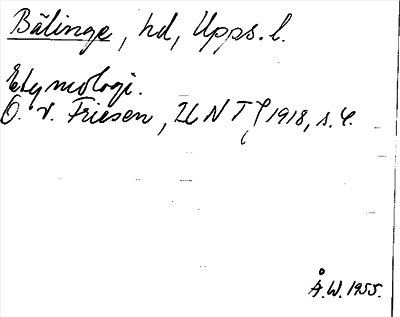 Bälinge, hd, Upps. l.
Etymologi.
O. v. Friesen, UNT 1918, s. 4.
Å.W. 1955.